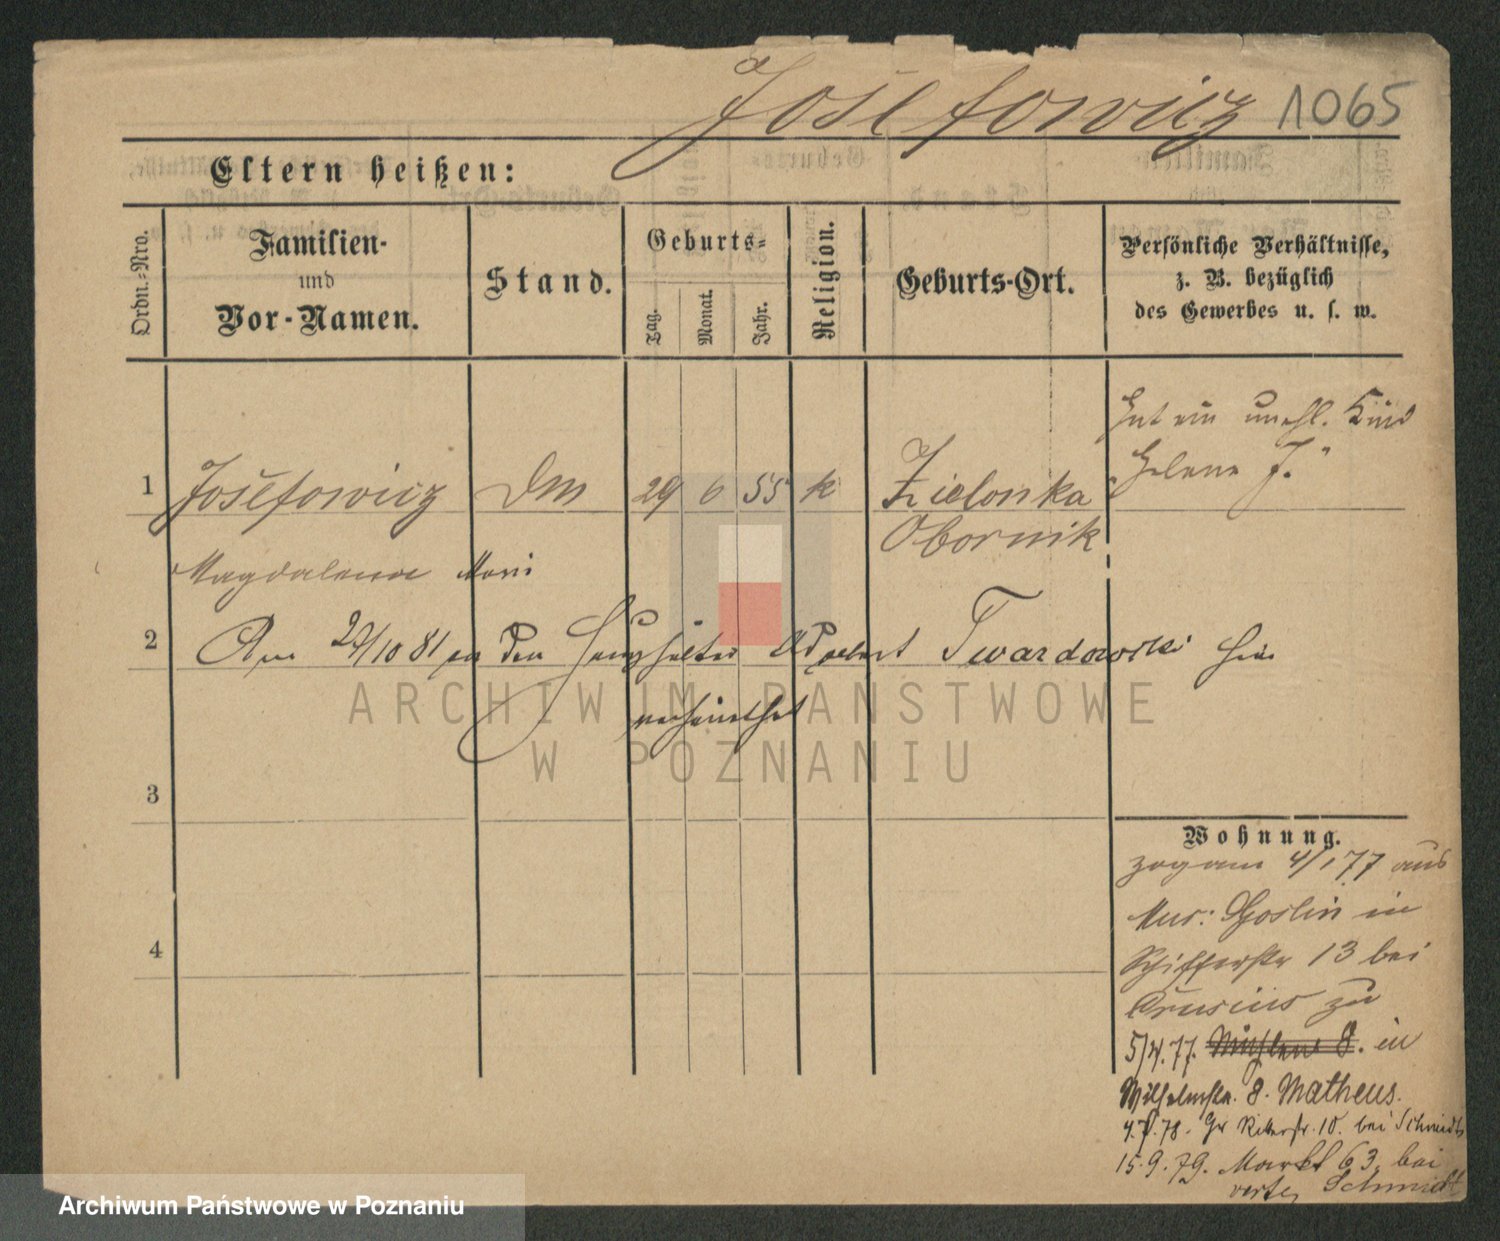 Josefowicz 1065
Eltern heißen:
Ordn.-Nro.
Familien-
und
Vor-Namen.
Stand.
Geburts-
Tag.
Monat.
Jahr.
Religion.
Geburts-Ort.
Persönliche Verhältnisse,
z. B. bezüglich
des Gewerbes u. s. w.
Hat ein unehl. Kind
"Helene J."
1 Josefowicz DM 29 6 55 k Zielonka
Obornik
Magdalena
2 Am 29/10 81 an den Haushälter Adalbert Twardowski hier
verheirathet
ARCHIWUM PAŃSTWOWE
W POZNANIU
3
4
Wohnung.
zog am 4/1 77 aus
Mur: Goslin in
Schifferstr 13 bei
Crusius zu
5/4.77. Mühlenst 8. in
Wilhelmstr. 8. Matheus.
4.7.78. Gr Ritterstr. 10. bei Schmidt
15.9.79. Markt 63. bei
Schmidt
Archiwum Państwowe w Poznaniu